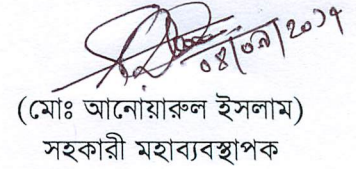 ০৪/০৯/২০১৭
(মোঃ আনোয়ারুল ইসলাম)
সহকারী মহাব্যবস্থাপক